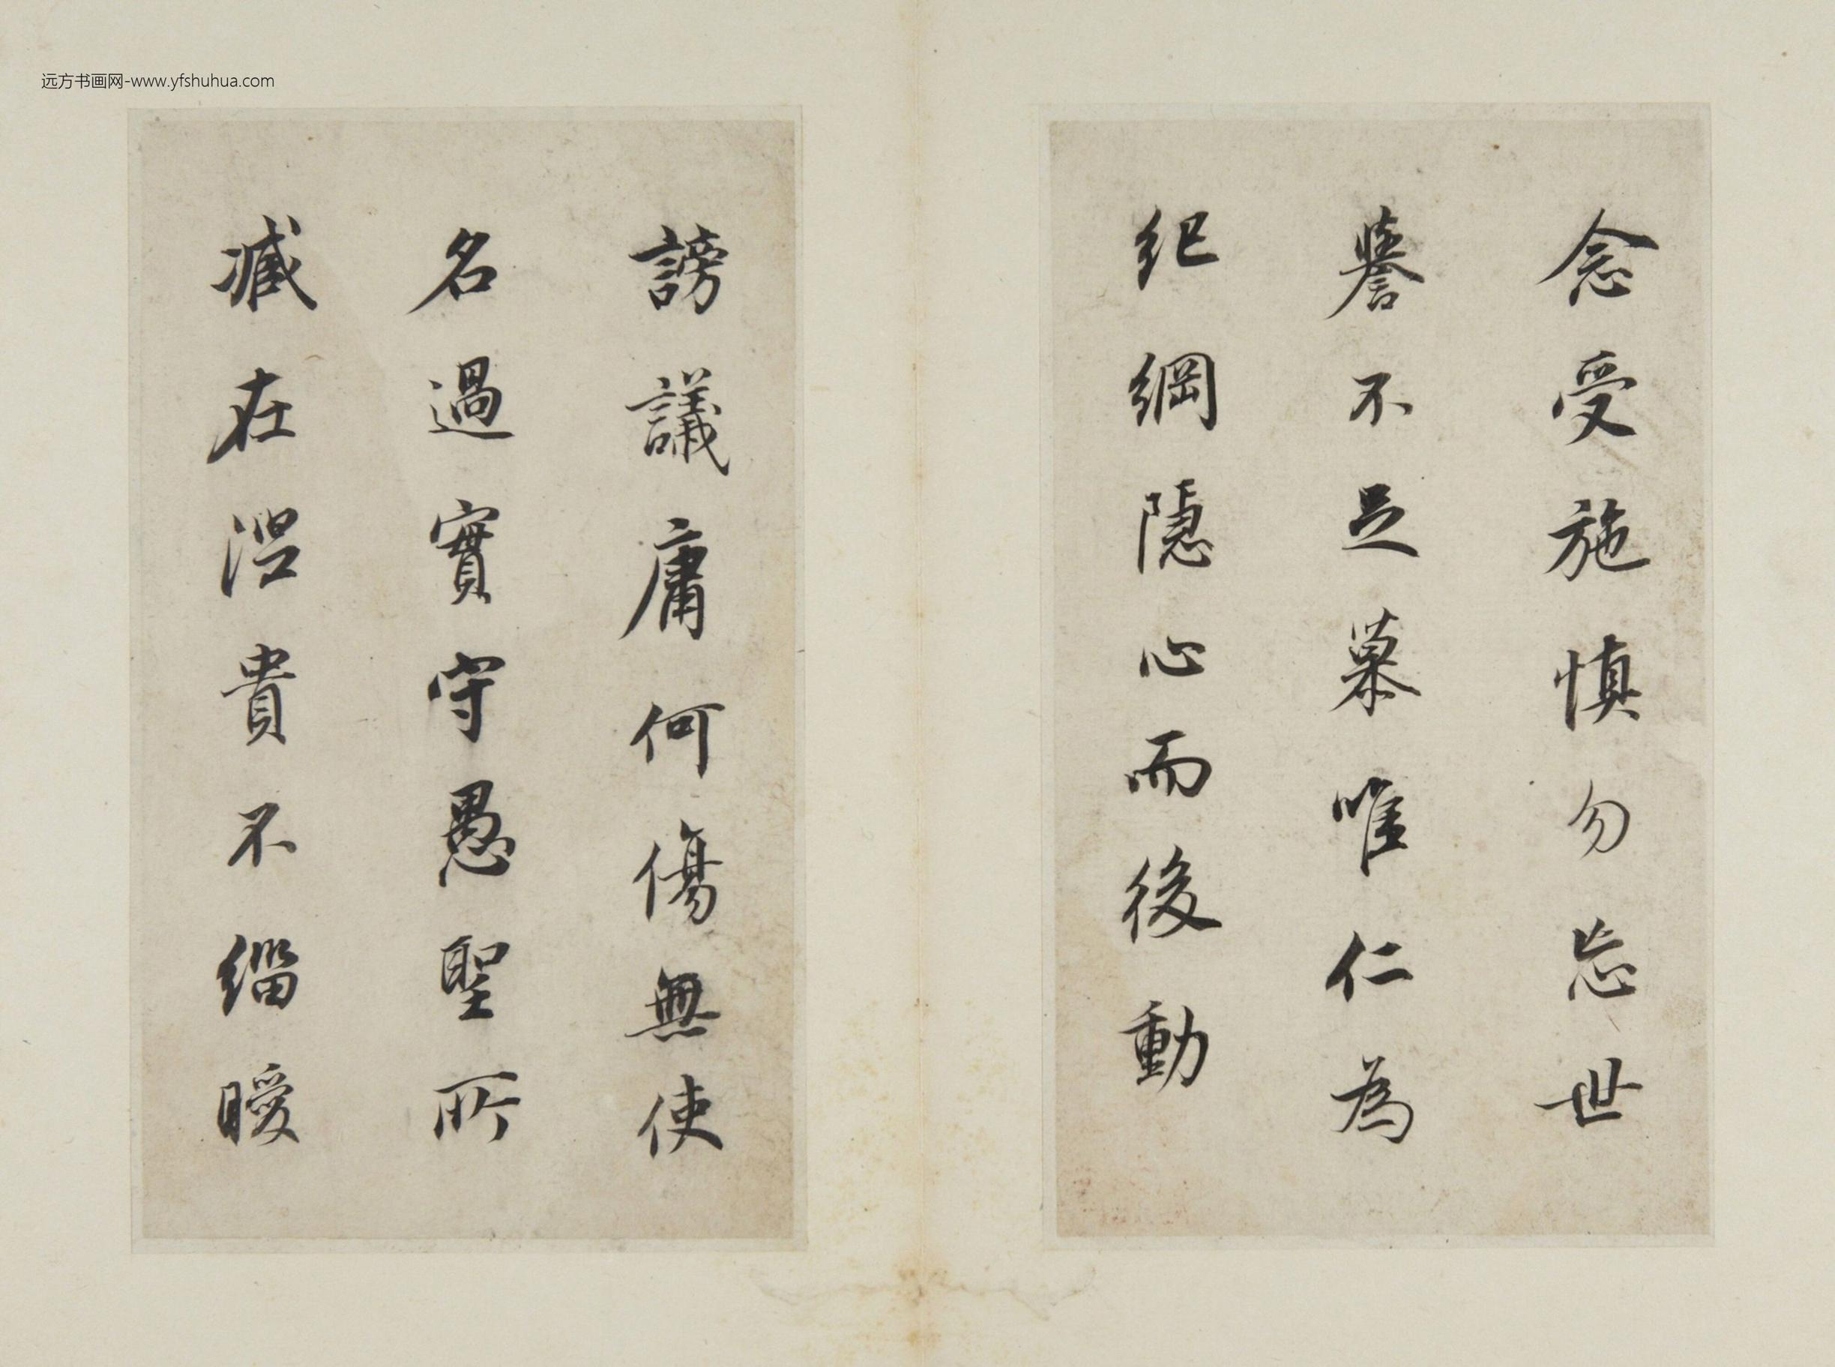 远方书画网-www.yfshuhua.com
念受施慎勿忘世
譽不足慕唯仁為
紀綱隱心而後動
謗議庸何傷無使
名過實守愚聖所
臧在涅貴不緇曖